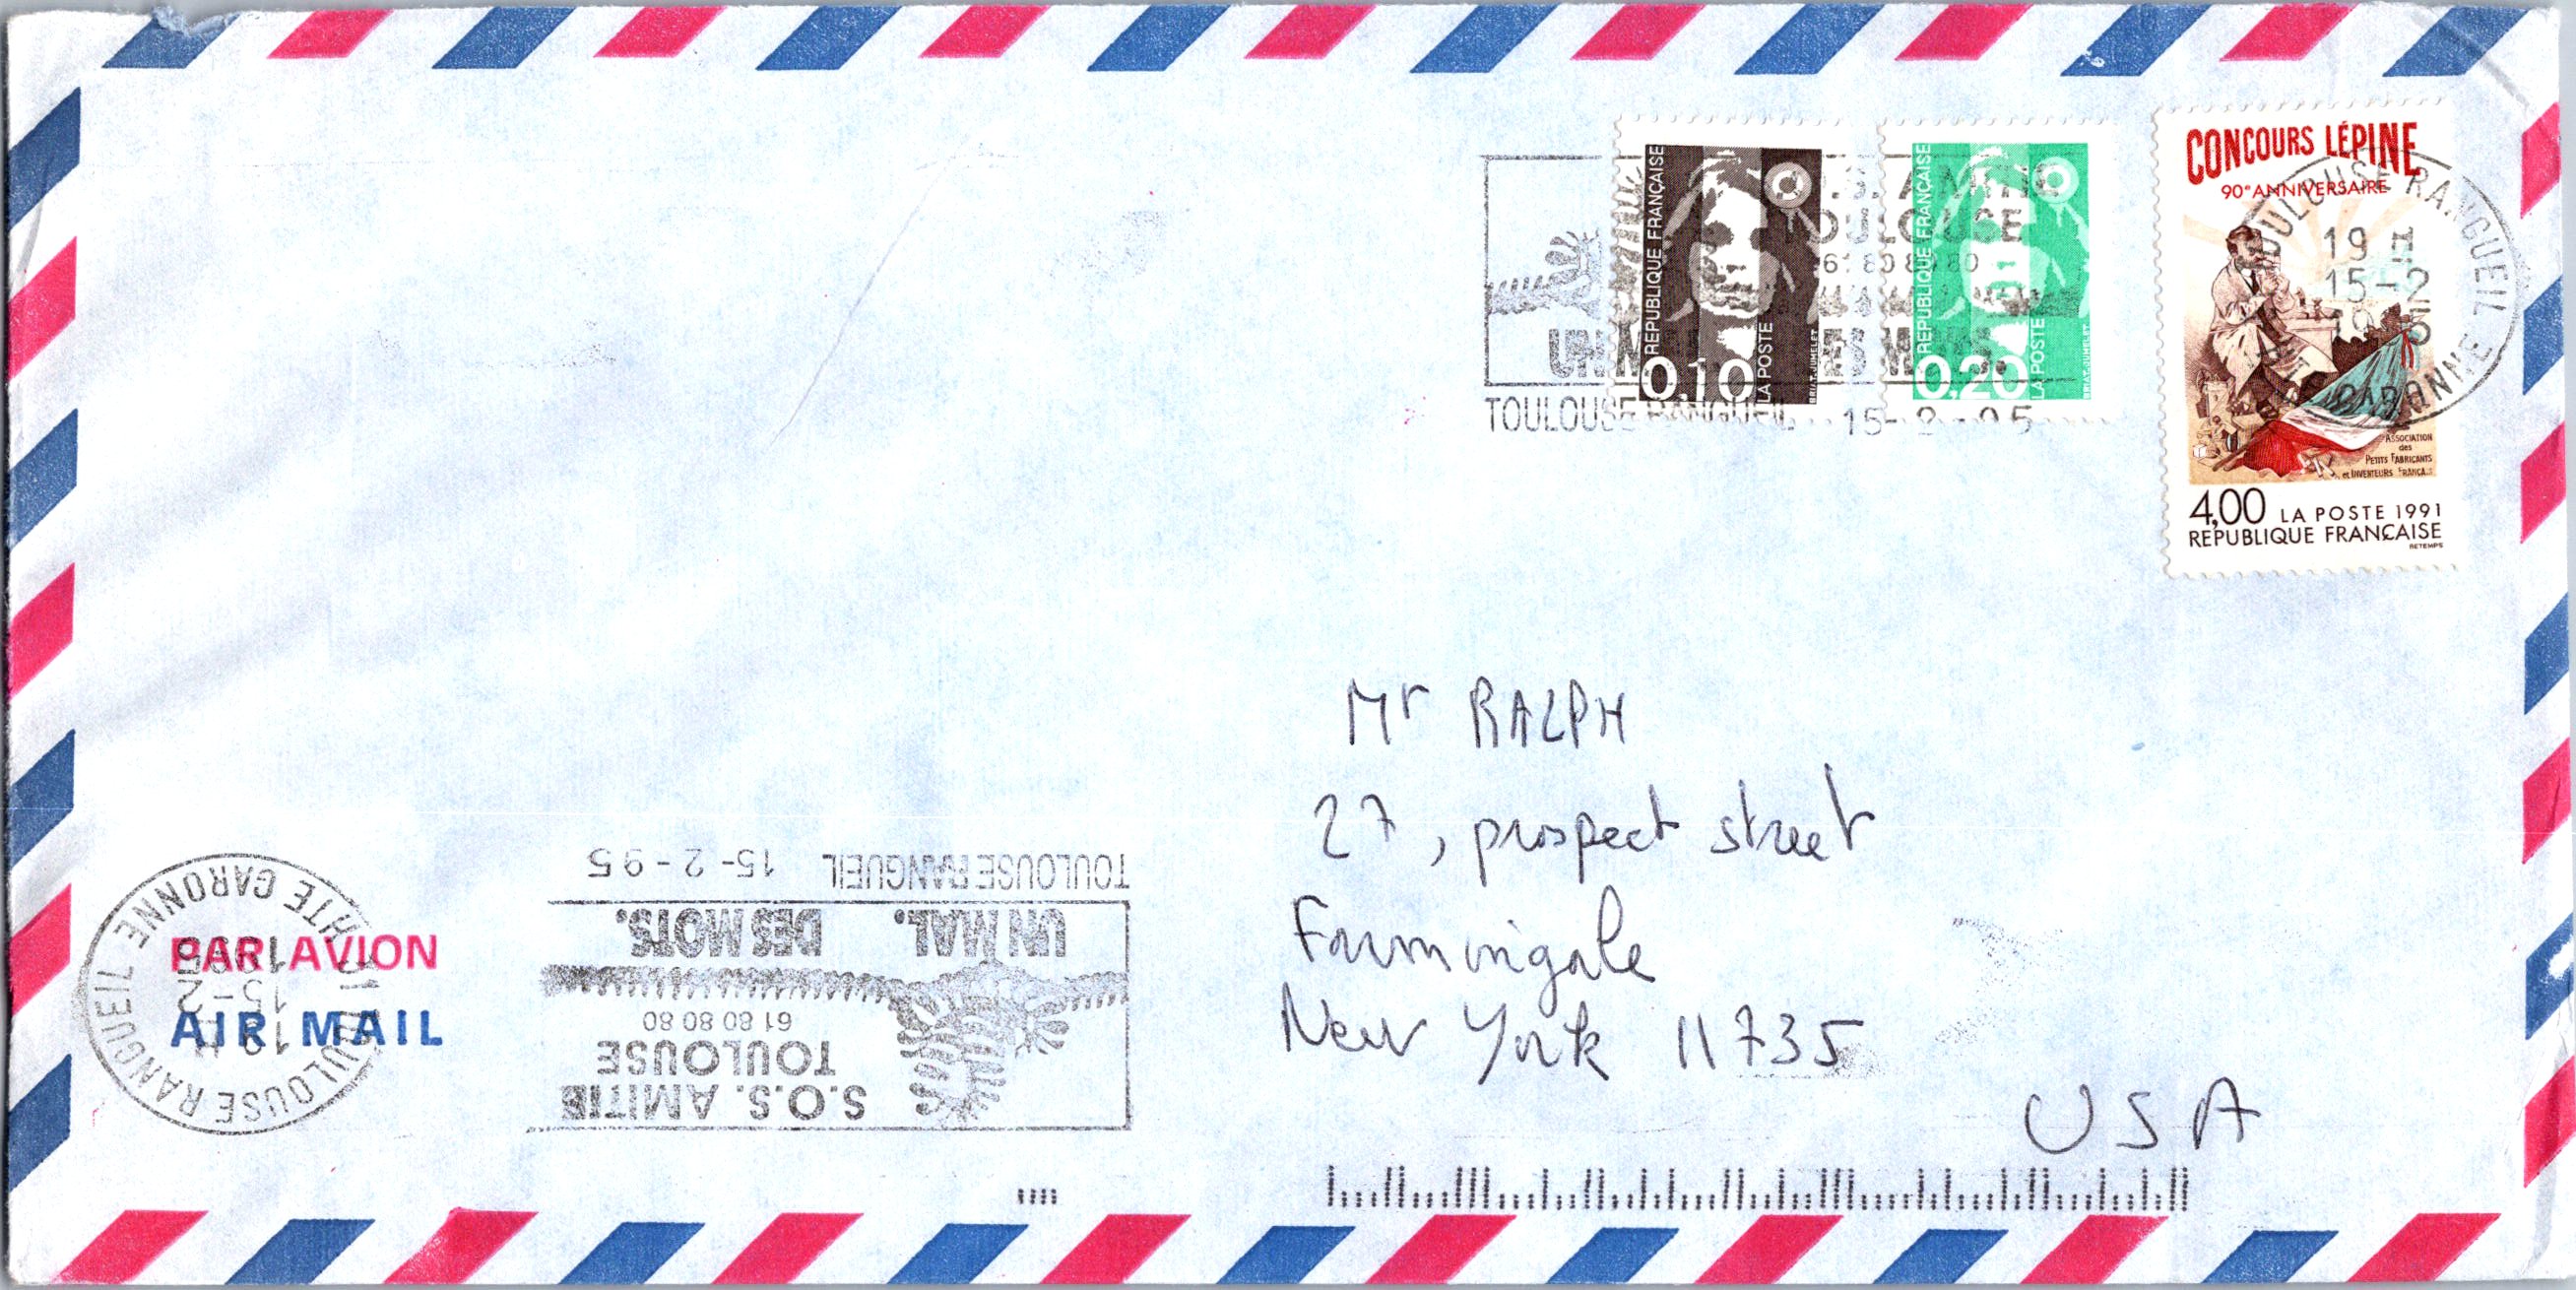 CONCOURS LÉPINE
90e ANNIVERSAIRE
ASSOCIATION
des
PETITS FABRICANTS
et INVENTEURS
4,00 LA POSTE 1991
REPUBLIQUE FRANÇAISE
RETEMPS
TOULOUSE RANGUEIL
19 H
15-2
GARONNE
REPUBLIQUE FRANÇAISE
0,10
LA POSTE
REPUBLIQUE FRANÇAISE
0,20
LA POSTE
TOULOUSE
61 80 80 80
TOULOUSE RANGUEIL 15-2-95
Mr RALPH
27, prospect street
Farmingale
New York 11735
USA
PAR AVION
AIR MAIL
TOULOUSE RANGUEIL
19 H
15-2
1995
31 HTE GARONNE
S.O.S. AMITIE
TOULOUSE
61 80 80 80
UN MAL. DES MOTS.
TOULOUSE RANGUEIL 15-2-95